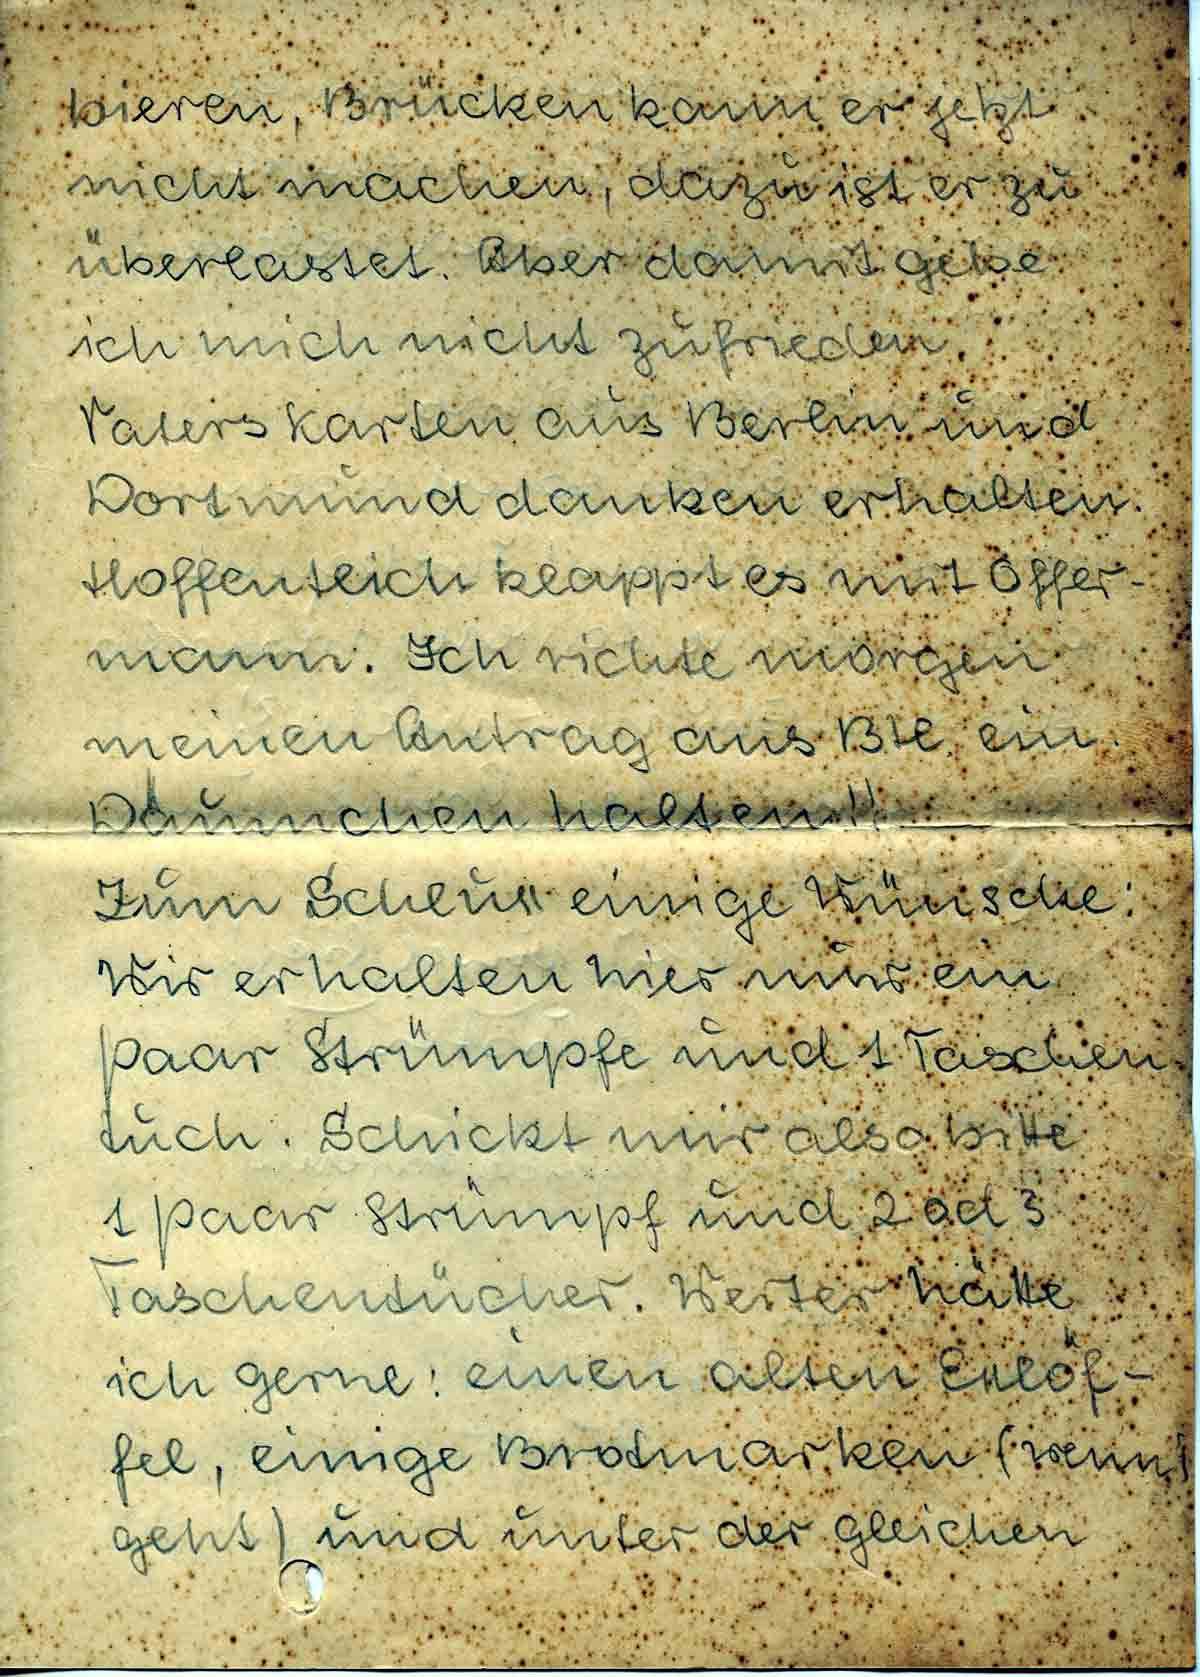 bieren, Brücken kann er jetzt
nicht machen, dazu ist er zu
überlastet. Aber damit gebe
ich mich nicht zufrieden.
Vaters Karten aus Berlin und
Dortmund danken erhalten.
Hoffentlich klappt es mit Offer-
mann. Ich richte morgen
meinen Antrag aus Btl. ein.
Däumchen halten!!
Zum Schluß einige Wünsche:
Wir erhalten hier nur ein
paar Strümpfe und 1 Taschen-
tuch. Schickt mir also bitte
1 paar Strümpf und 2 od 3
Taschentücher. Weiter hätte
ich gerne: einen alten Eßlöf-
fel, einige Brotmarken (wenn's
geht) und unter der gleichen